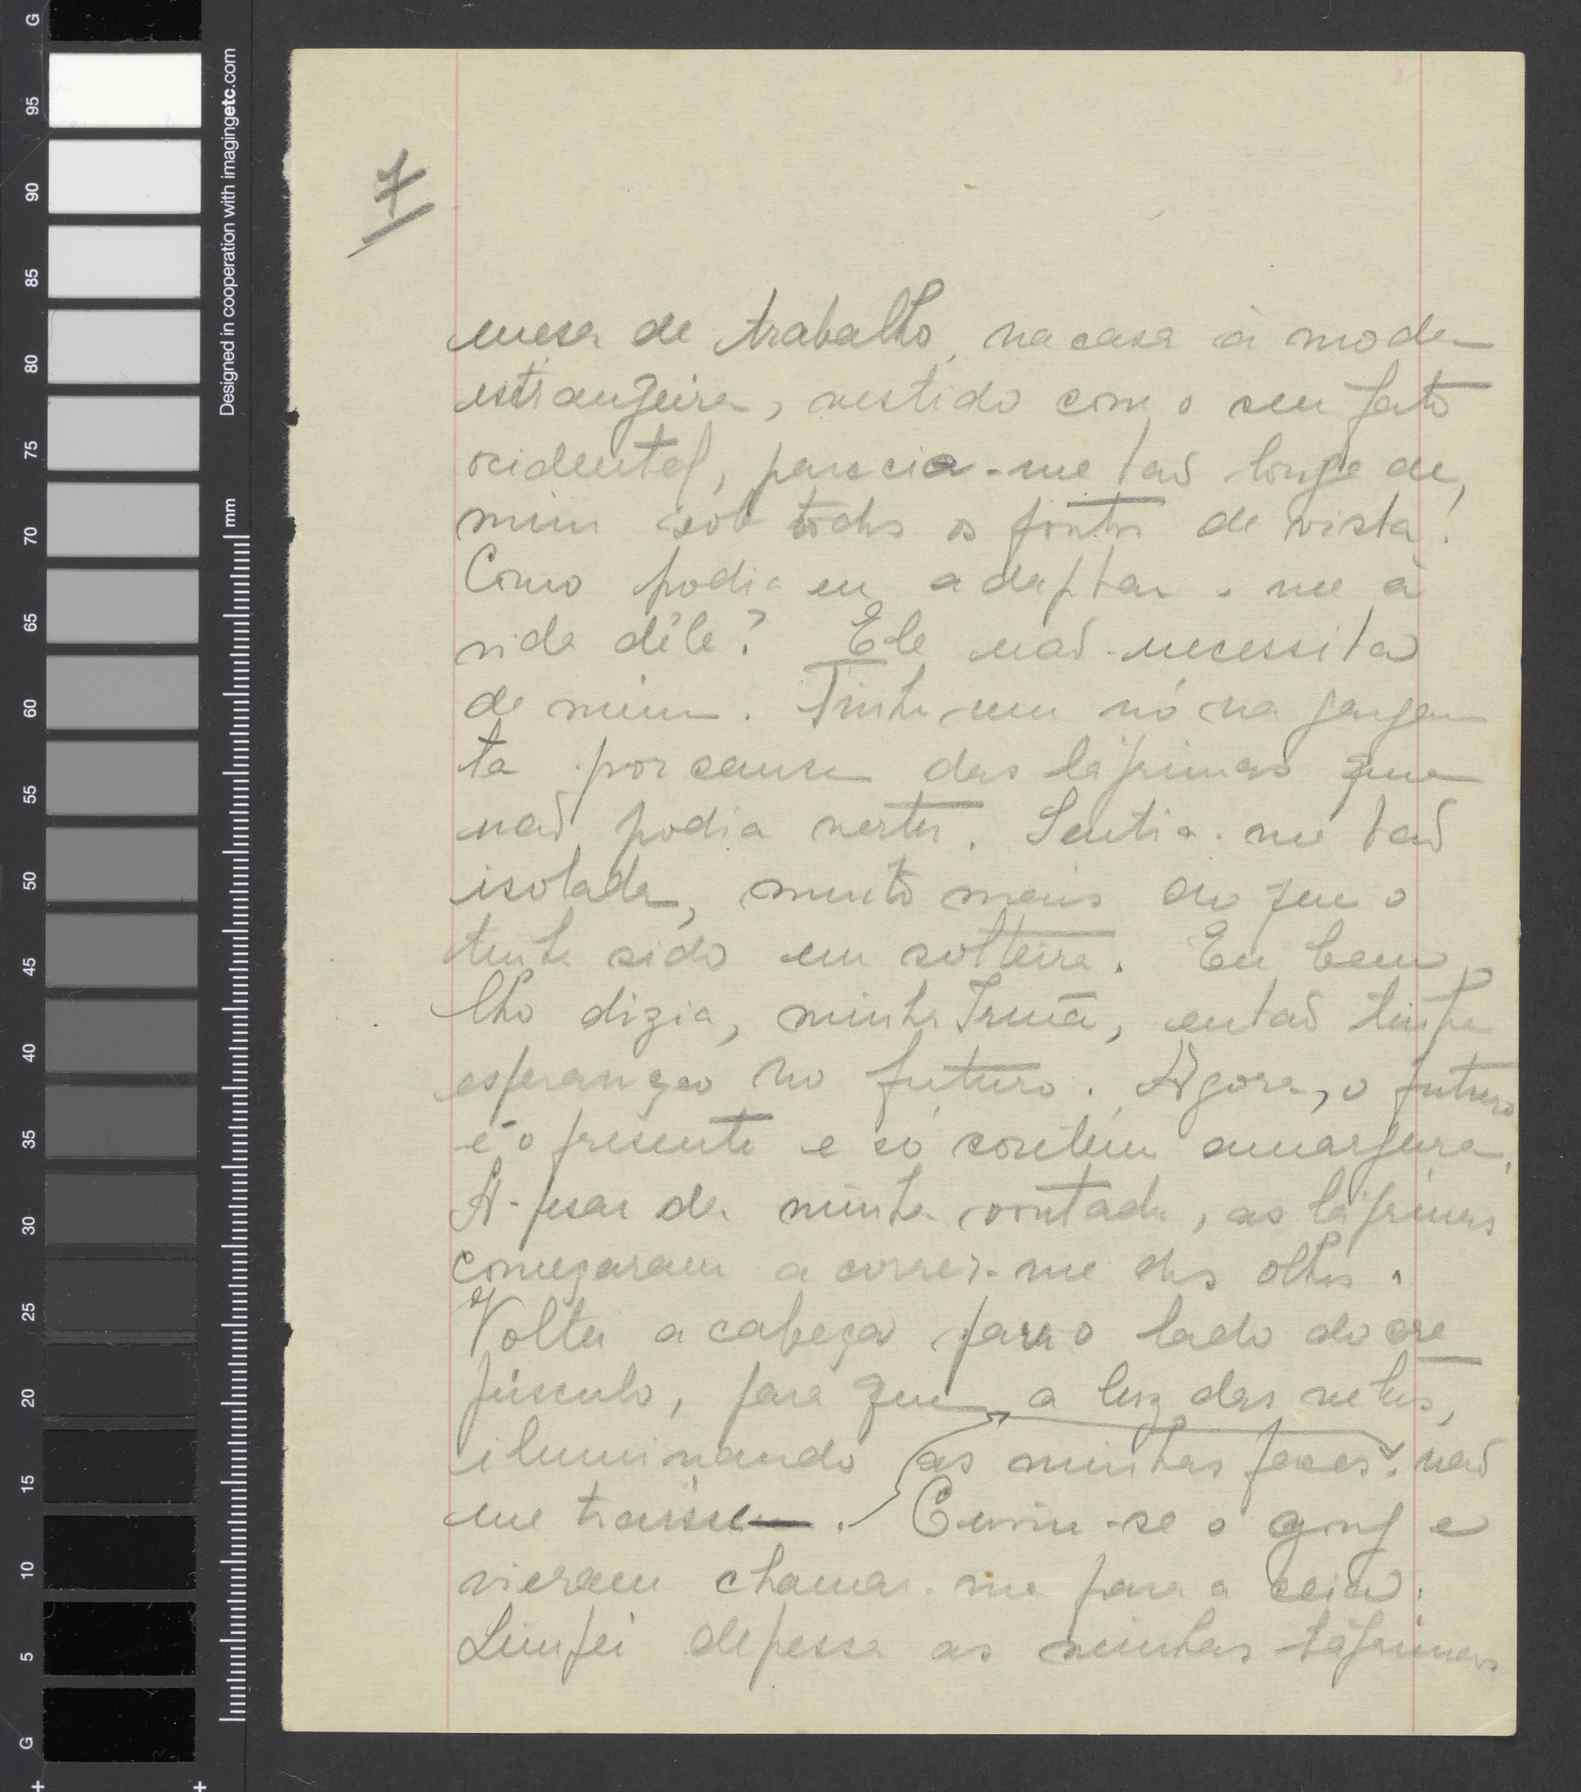 7
mesa de trabalho, na casa à moda
estrangeira, vestido com o seu fato
ocidental, parecia-me tão longe de
mim sob todos os pontos de vista!
Como podia eu adaptar-me à
vida dêle? Ele não necessita
de mim. Tinha um nó na gargan
ta por causa das lágrimas que
não podia verter. Sentia-me tão
isolada, muito mais do que o
tinha sido em solteira. Eu bem
lho dizia, minha Irmã, então tinha
esperanças no futuro. Agora, o futuro
é o presente e só contém amargura.
A-pesar da minha vontade, as lágrimas
começaram a correr-me dos olhos.
Voltei a cabeça para o lado do cre
púsculo, para que a luz das velas,
iluminando as minhas faces, não
me traísse. Ouviu-se o gong e
vieram chamar-me para a ceia.
Limpei depressa as minhas lágrimas
G
95
90
85
80
75
70
65
60
55
50
45
40
35
30
25
20
15
10
5
G
Designed in cooperation with imagingetc.com
mm